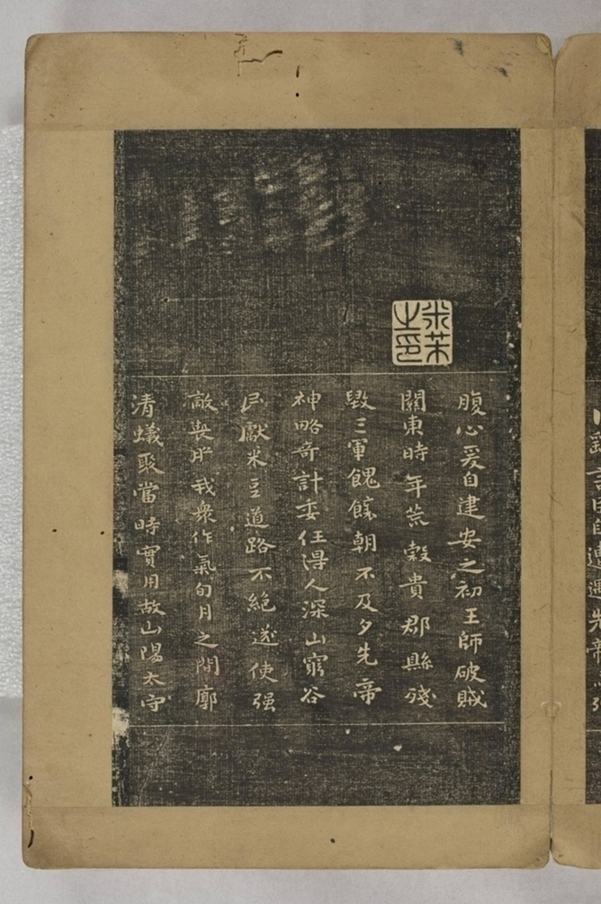 言臣自遭遇先帝
米芾之印
腹心爰自建安之初王師破賊
關東時年荒穀貴郡縣殘
毀三軍餽饟朝不及夕先帝
神略奇計委任得人深山窮谷
民獻米豆道路不絕遂使强
敵喪膽我衆作氣旬月之間廓
清蟻聚當時實用故山陽太守